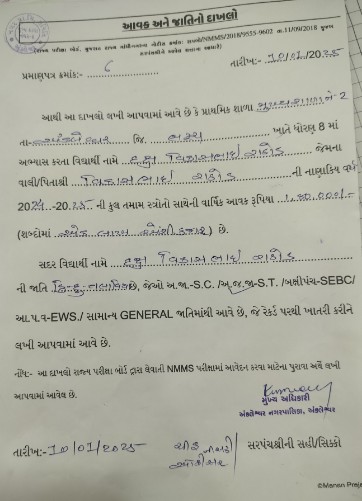 આવક અને જાતિનો દાખલો
(રાજ્ય પરીક્ષા બોર્ડ, ગુજરાત રાજ્ય ગાંધીનગરના નોટીસ ક્રમાંક: રાપબો/NMMS/2018/9555-9602 તા.11/09/2018 મુજબ
કચેરીઓએ આપવાનો થતો દાખલો)
તારીખ:- 10/01/2025
પ્રમાણપત્ર ક્રમાંક:- 6
આથી આ દાખલો લખી આપવામાં આવે છે કે પ્રાથમિક શાળા મુખ્ય શાળા નં-2
તા- અંકલેશ્વર જિ. ભરૂચ ખાતે ધોરણ 8 માં
અભ્યાસ કરતા વિદ્યાર્થી નામે વિકાસભાઈ રાઠોડ જેમના
વાલી/પિતાશ્રી વિકાસભાઈ રાઠોડ ની નાણાકિય વર્ષ
2024-2025 ની કુલ તમામ સ્ત્રોતો સાથેની વાર્ષિક આવક રૂપિયા 1,80,000/-
(શબ્દોમાં એક લાખ એંશી હજાર) છે.
સદર વિદ્યાર્થી નામે વિકાસભાઈ રાઠોડ
ની જાતિ હિન્દુ તલાવિયા છે, જેઓ અ.જા.-S.C. /અ.જ.જા-S.T. /બક્ષીપંચ-SEBC/
આ.પ.વ-EWS./ સામાન્ય GENERAL જાતિમાંથી આવે છે, જે રેકર્ડ પરથી ખાતરી કરીને
લખી આપવામાં આવે છે.
નોંધ:- આ દાખલો રાજ્ય પરીક્ષા બોર્ડ દ્વારા લેવાતી NMMS પરીક્ષામાં આવેદન કરવા માટેના પુરાવા અર્થે લખી
આપવામાં આવેલ છે.
મુખ્ય અધિકારી
અંકલેશ્વર નગરપાલિકા, અંકલેશ્વર
તારીખ:- 10/01/2025
ચીફ ઓફિસર/ સરપંચશ્રીની સહી/સિક્કો
©Manan Praj